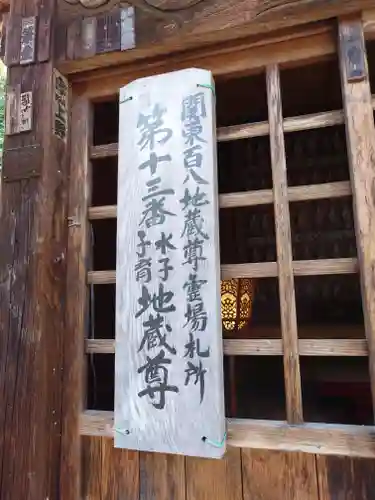 関東百八地蔵尊霊場札所
第十三番
水子
子育
地蔵尊